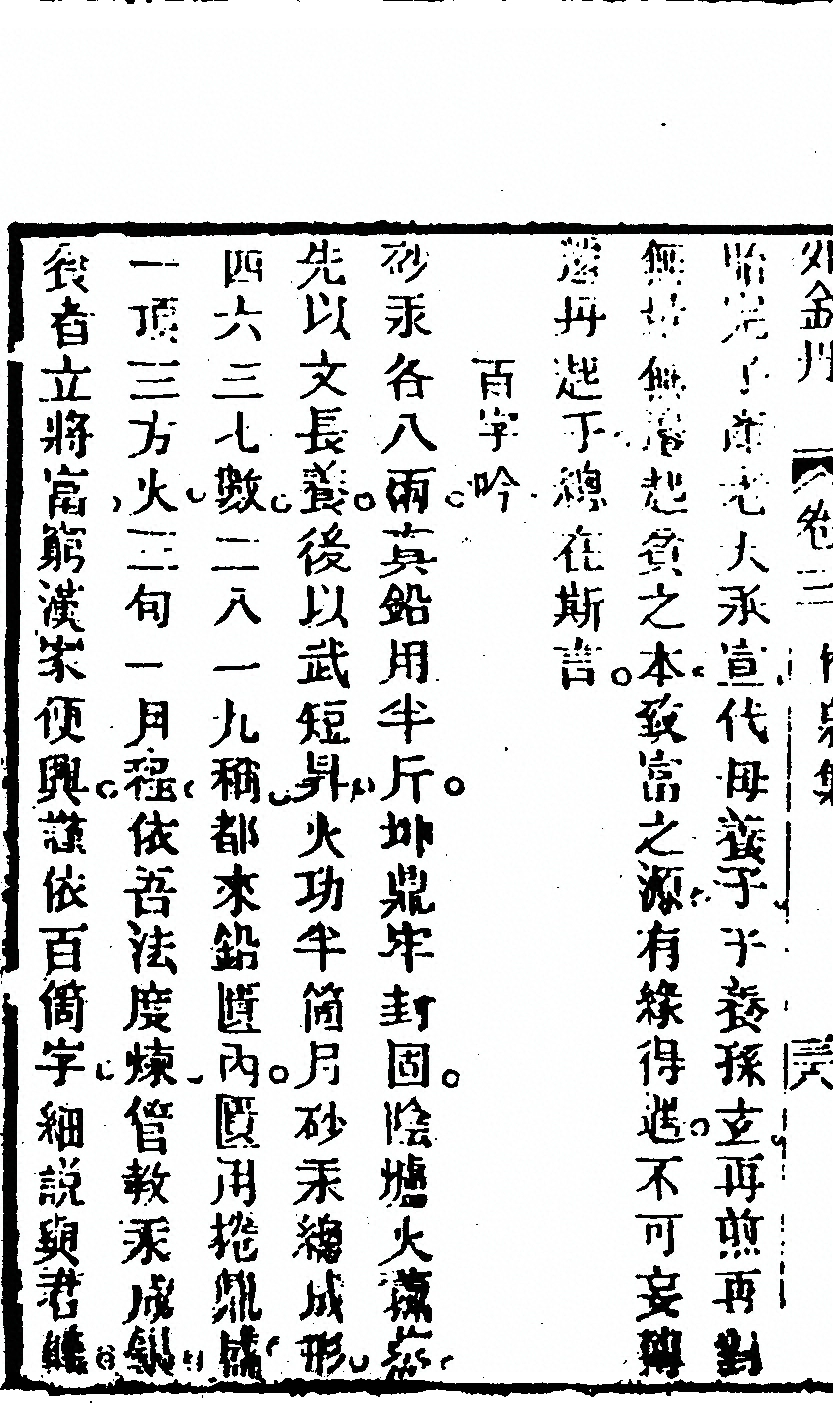 外金丹 卷三 竹泉集
胎完了產老大汞宣代母養子子養孫玄再煎再
無苦無澀起貧之本致富之源有緣得遇不可妄傳
還丹起手總在斯言
百字吟
砂汞各八兩真鉛用半斤坤鼎牢封固陰爐火薰蒸
先以文長養後以武短昇火功半箇月砂汞總成形
四六三七數二八一九稱都來鉛匱內匱用捲鼎盛
一項三方火二旬一月程依吾法度煉管教汞成銀
後者立將富窮漢家便興謹依百箇字細說與君聽